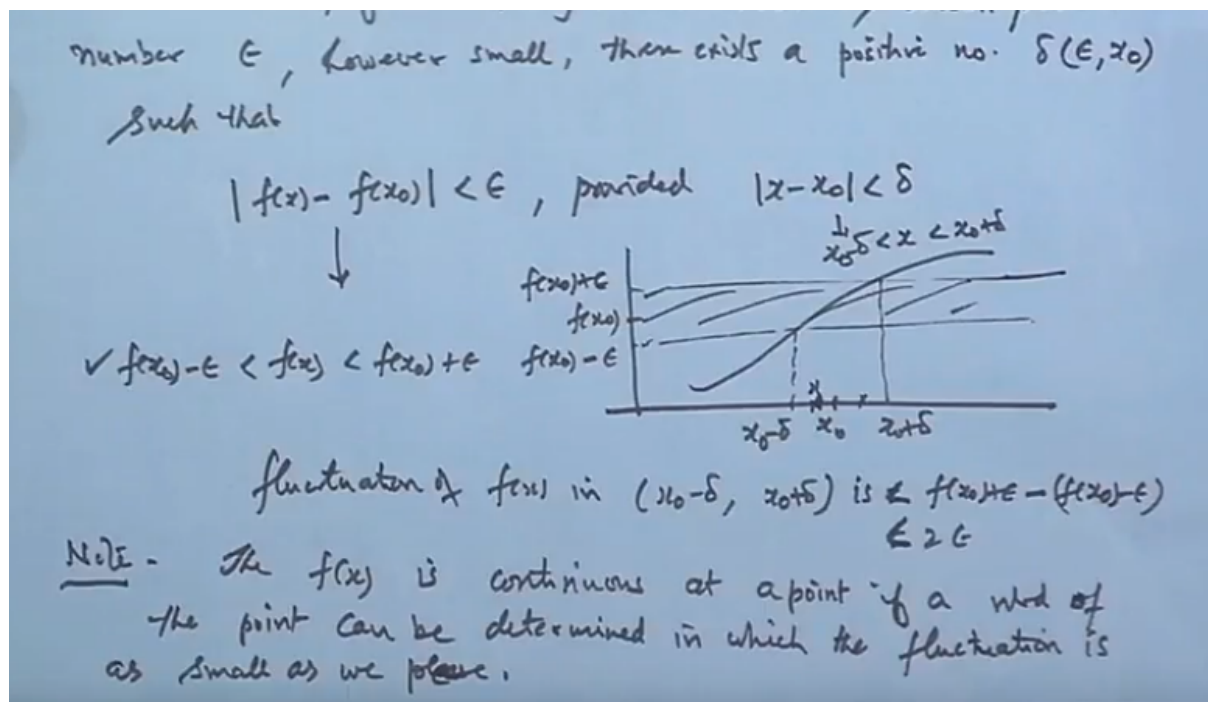 number ∈, however small, there exists a positive no. δ(∈, x0)
such that
|f(x) - f(x0)| < ∈, provided |x - x0| < δ
x0-δ < x < x0+δ
f(x0)+∈
f(x0)
✓ f(x0)-∈ < f(x) < f(x0)+∈ f(x0)-∈
x
x0-δ x0 x0+δ
fluctuation of f(x) in (x0-δ, x0+δ) is ≤ f(x0)+∈-(f(x0)-∈)
≤ 2∈
Note - The f(x) is continuous at a point if a nbd of
the point can be determined in which the fluctuation is
as small as we please.